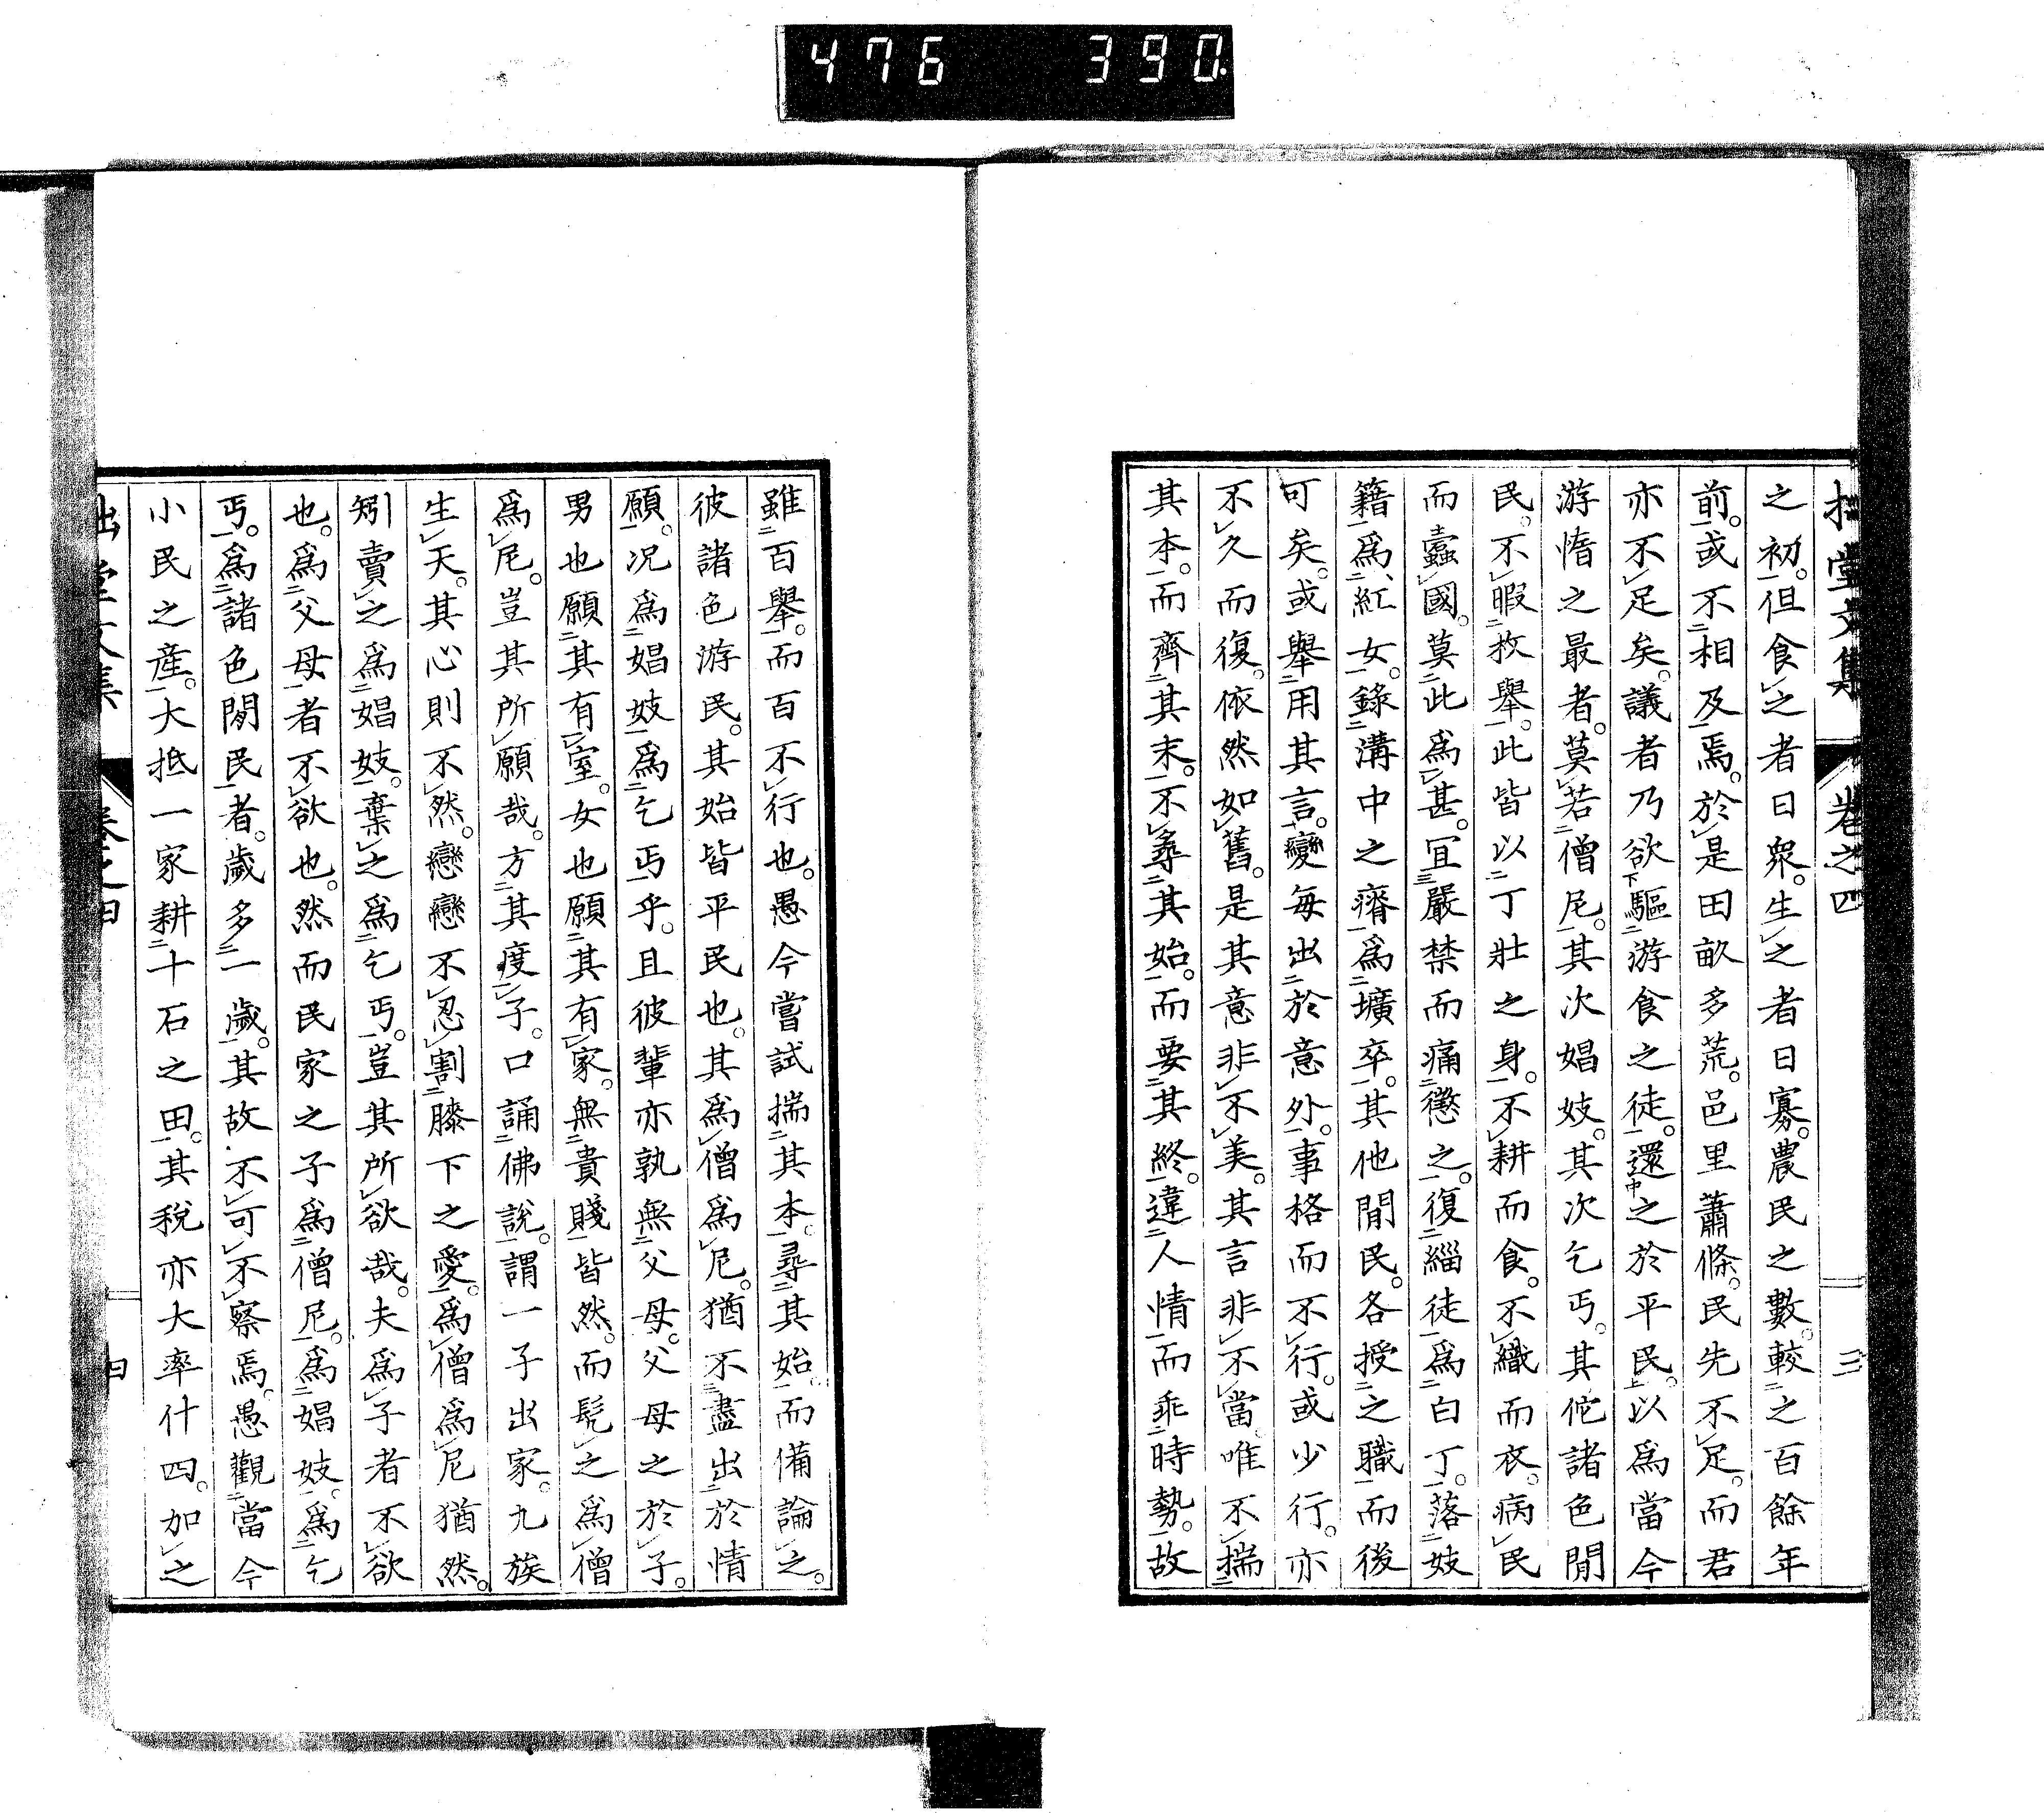 476 390.
拙堂文集 卷之四 三
之初。但食之者日衆。生之者日寡。農民之數。較之百餘年
前。或不相及焉。於是田畝多荒。邑里蕭條。民先不足。而君
亦不足矣。議者乃欲驅游食之徒。還之於平民。以爲當今
游惰之最者。莫若僧尼。其次娼妓。其次乞丐。其佗諸色閒
民。不暇枚舉。此皆以丁壯之身。不耕而食。不織而衣。病民
而蠹國。莫此爲甚。宜嚴禁而痛懲之。復緇徒爲白丁。落妓
籍爲紅女。錄溝中之瘠爲壙卒。其他閒民。各授之職而後
可矣。或舉用其言。變每出於意外。事格而不行。或少行。亦
不久而復。依然如舊。是其意非不美。其言非不當。唯不揣
其本。而齊其末。不尋其始。而要其終。違人情而乖時勢。故
雖百舉。而百不行也。愚今嘗試揣其本。尋其始。而備論之。
彼諸色游民。其始皆平民也。其爲僧爲尼。猶不盡出於情
願。况爲娼妓爲乞丐乎。且彼輩亦孰無父母。父母之於子。
男也願其有室。女也願其有家。無貴賤皆然。而髡之爲僧
爲尼。豈其所願哉。方其度子。口誦佛說。謂一子出家。九族
生天。其心則不然。戀戀不忍割膝下之愛。爲僧爲尼猶然。
矧賣之爲娼妓。棄之爲乞丐。豈其所欲哉。夫爲子者不欲
也。爲父母者不欲也。然而民家之子爲僧尼。爲娼妓。爲乞
丐。爲諸色閒民者。歲多一歲。其故不可不察焉。愚觀當今
小民之產。大抵一家耕十石之田。其稅亦大率什四。加之
拙堂文集 卷之四 四